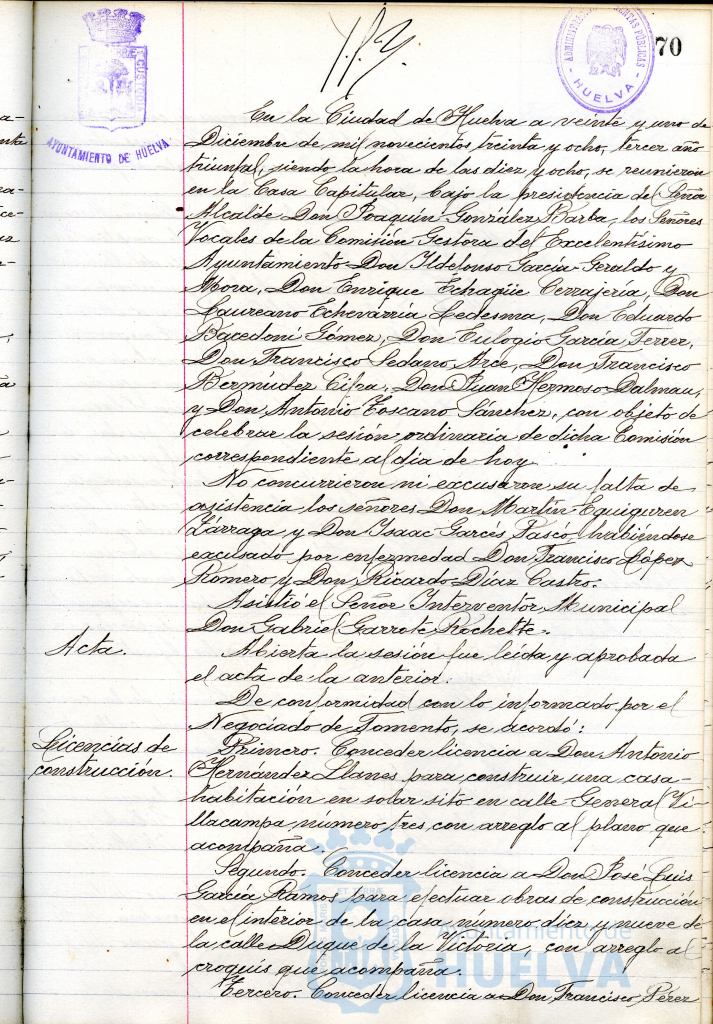 70
AYUNTAMIENTO DE HUELVA
HUELVA
En la Ciudad de Huelva a veinte y uno de
Diciembre de mil novecientos treinta y ocho, tercer año
triunfal, siendo la hora de las diez y ocho, se reunieron
en la Casa Capitular, bajo la presidencia del Señor
Alcalde Don Joaquín González Barba, los Señores
Vocales de la Comisión Gestora del Excelentísimo
Ayuntamiento Don Ildefonso García Geraldo y
Mora, Don Enrique Echagüe Cerrajería, Don
Laureano Echevarría Ledesma, Don Eduardo
Bacedoni Gómez, Don Eulogio García Ferrer,
Don Francisco Sedano Arce, Don Francisco
Bermúdez Cifra, Don Juan Hermoso Dalmau,
y Don Antonio Toscano Sánchez, con objeto de
celebrar la sesión ordinaria de dicha Comisión
correspondiente al día de hoy
No concurrieron ni excusaron su falta de
asistencia los señores Don Martín Eguiguren
Zárraga y Don Isaac Garcés Pascó, habiéndose
excusado por enfermedad Don Francisco López
Romero y Don Ricardo Díaz Castro.
Asistió el Señor Interventor Municipal
Don Gabriel Garrote Rochette.
Acta.
Abierta la sesión fue leída y aprobada
el acta de la anterior.
De conformidad con lo informado por el
Negociado de Fomento, se acordó:
Licencias de
construcción.
Primero. Conceder licencia a Don Antonio
Hernandez Llanes para construir una casa-
habitación en solar sito en calle General Vi-
llacampa número tres con arreglo al plano que
acompaña.
Segundo. Conceder licencia a Don José Luis
García Ramos para efectuar obras de construcción
en el interior de la casa número diez y nueve de
la calle Duque de la Victoria, con arreglo al
croquis que acompaña.
Tercero. Conceder licencia a Don Francisco Pérez
Ayuntamiento de
HUELVA